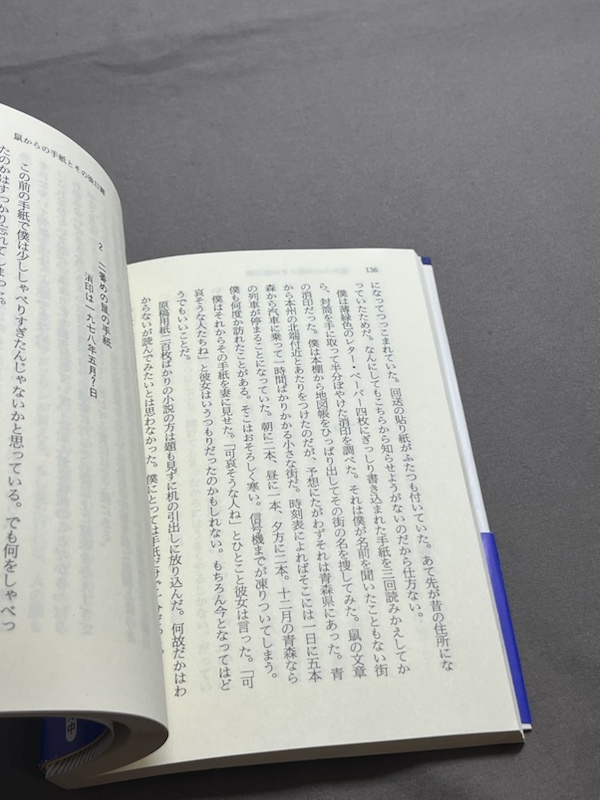 136
になってつっこまれていた。回送の貼り紙がふたつも付いていた。あて先が昔の住所にな
っていたためだ。なんにしてもこちらから知らせようがないのだから仕方ない。
僕は薄緑色のレター・ペーパー四枚にぎっしり書き込まれた手紙を三回読みかえしてか
ら、封筒を手に取って半分ぼやけた消印を調べた。それは僕が名前を聞いたこともない街
の消印だった。僕は本棚から地図帳をひっぱり出してその街の名を捜してみた。鼠の文章
から本州の北端付近とあたりをつけたのだが、予想にたがわずそれは青森県にあった。青
森から汽車に乗って一時間ばかりかかる小さな街だ。時刻表によればそこには一日に五本
の列車が停まることになっていた。朝に二本、昼に一本、夕方に二本。十二月の青森なら
僕も何度か訪れたことがある。そこはおそろしく寒い。信号機までが凍りついてしまう。
僕はそれからその手紙を妻に見せた。「可哀そうな人ね」とひとこと彼女は言った。「可
哀そうな人たちね」と彼女はいうつもりだったのかもしれない。もちろん今となってはど
うでもいいことだ。
原稿用紙二百枚ばかりの小説の方は題も見ずに机の引出しに放り込んだ。何故だかはわ
からないが読んでみたいとは思わなかった。僕にとっては手紙だけ
鼠からの手紙とその後日譚
2 二番めの鼠の手紙
消印は一九七八年五月?日
この前の手紙で僕は少ししゃべりすぎたんじゃないかと思っている。でも何をしゃべっ
たのかはすっかり忘れてしまった。
中